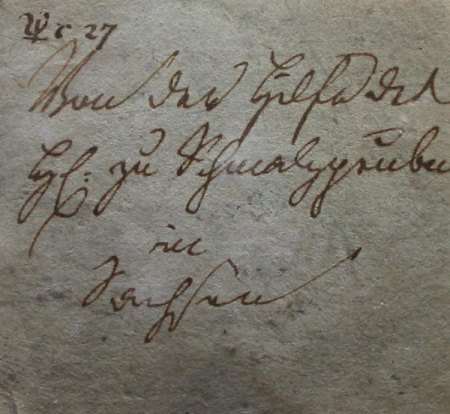 Nr 27
Von der Hilfe des
H: zu Schmalzgruben
in
Sachsen